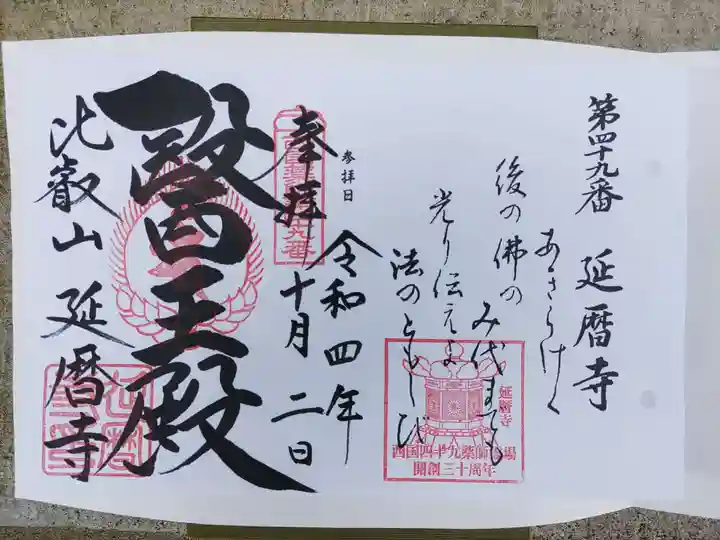 第四十九番 延暦寺
あきらけく
後の佛の
み代までも
光り伝えよ
法のともしび
延暦寺
西国四十九薬師霊場
開創三十周年
参拝日
令和四年
十月二日
奉拝
醫王殿
比叡山 延暦寺